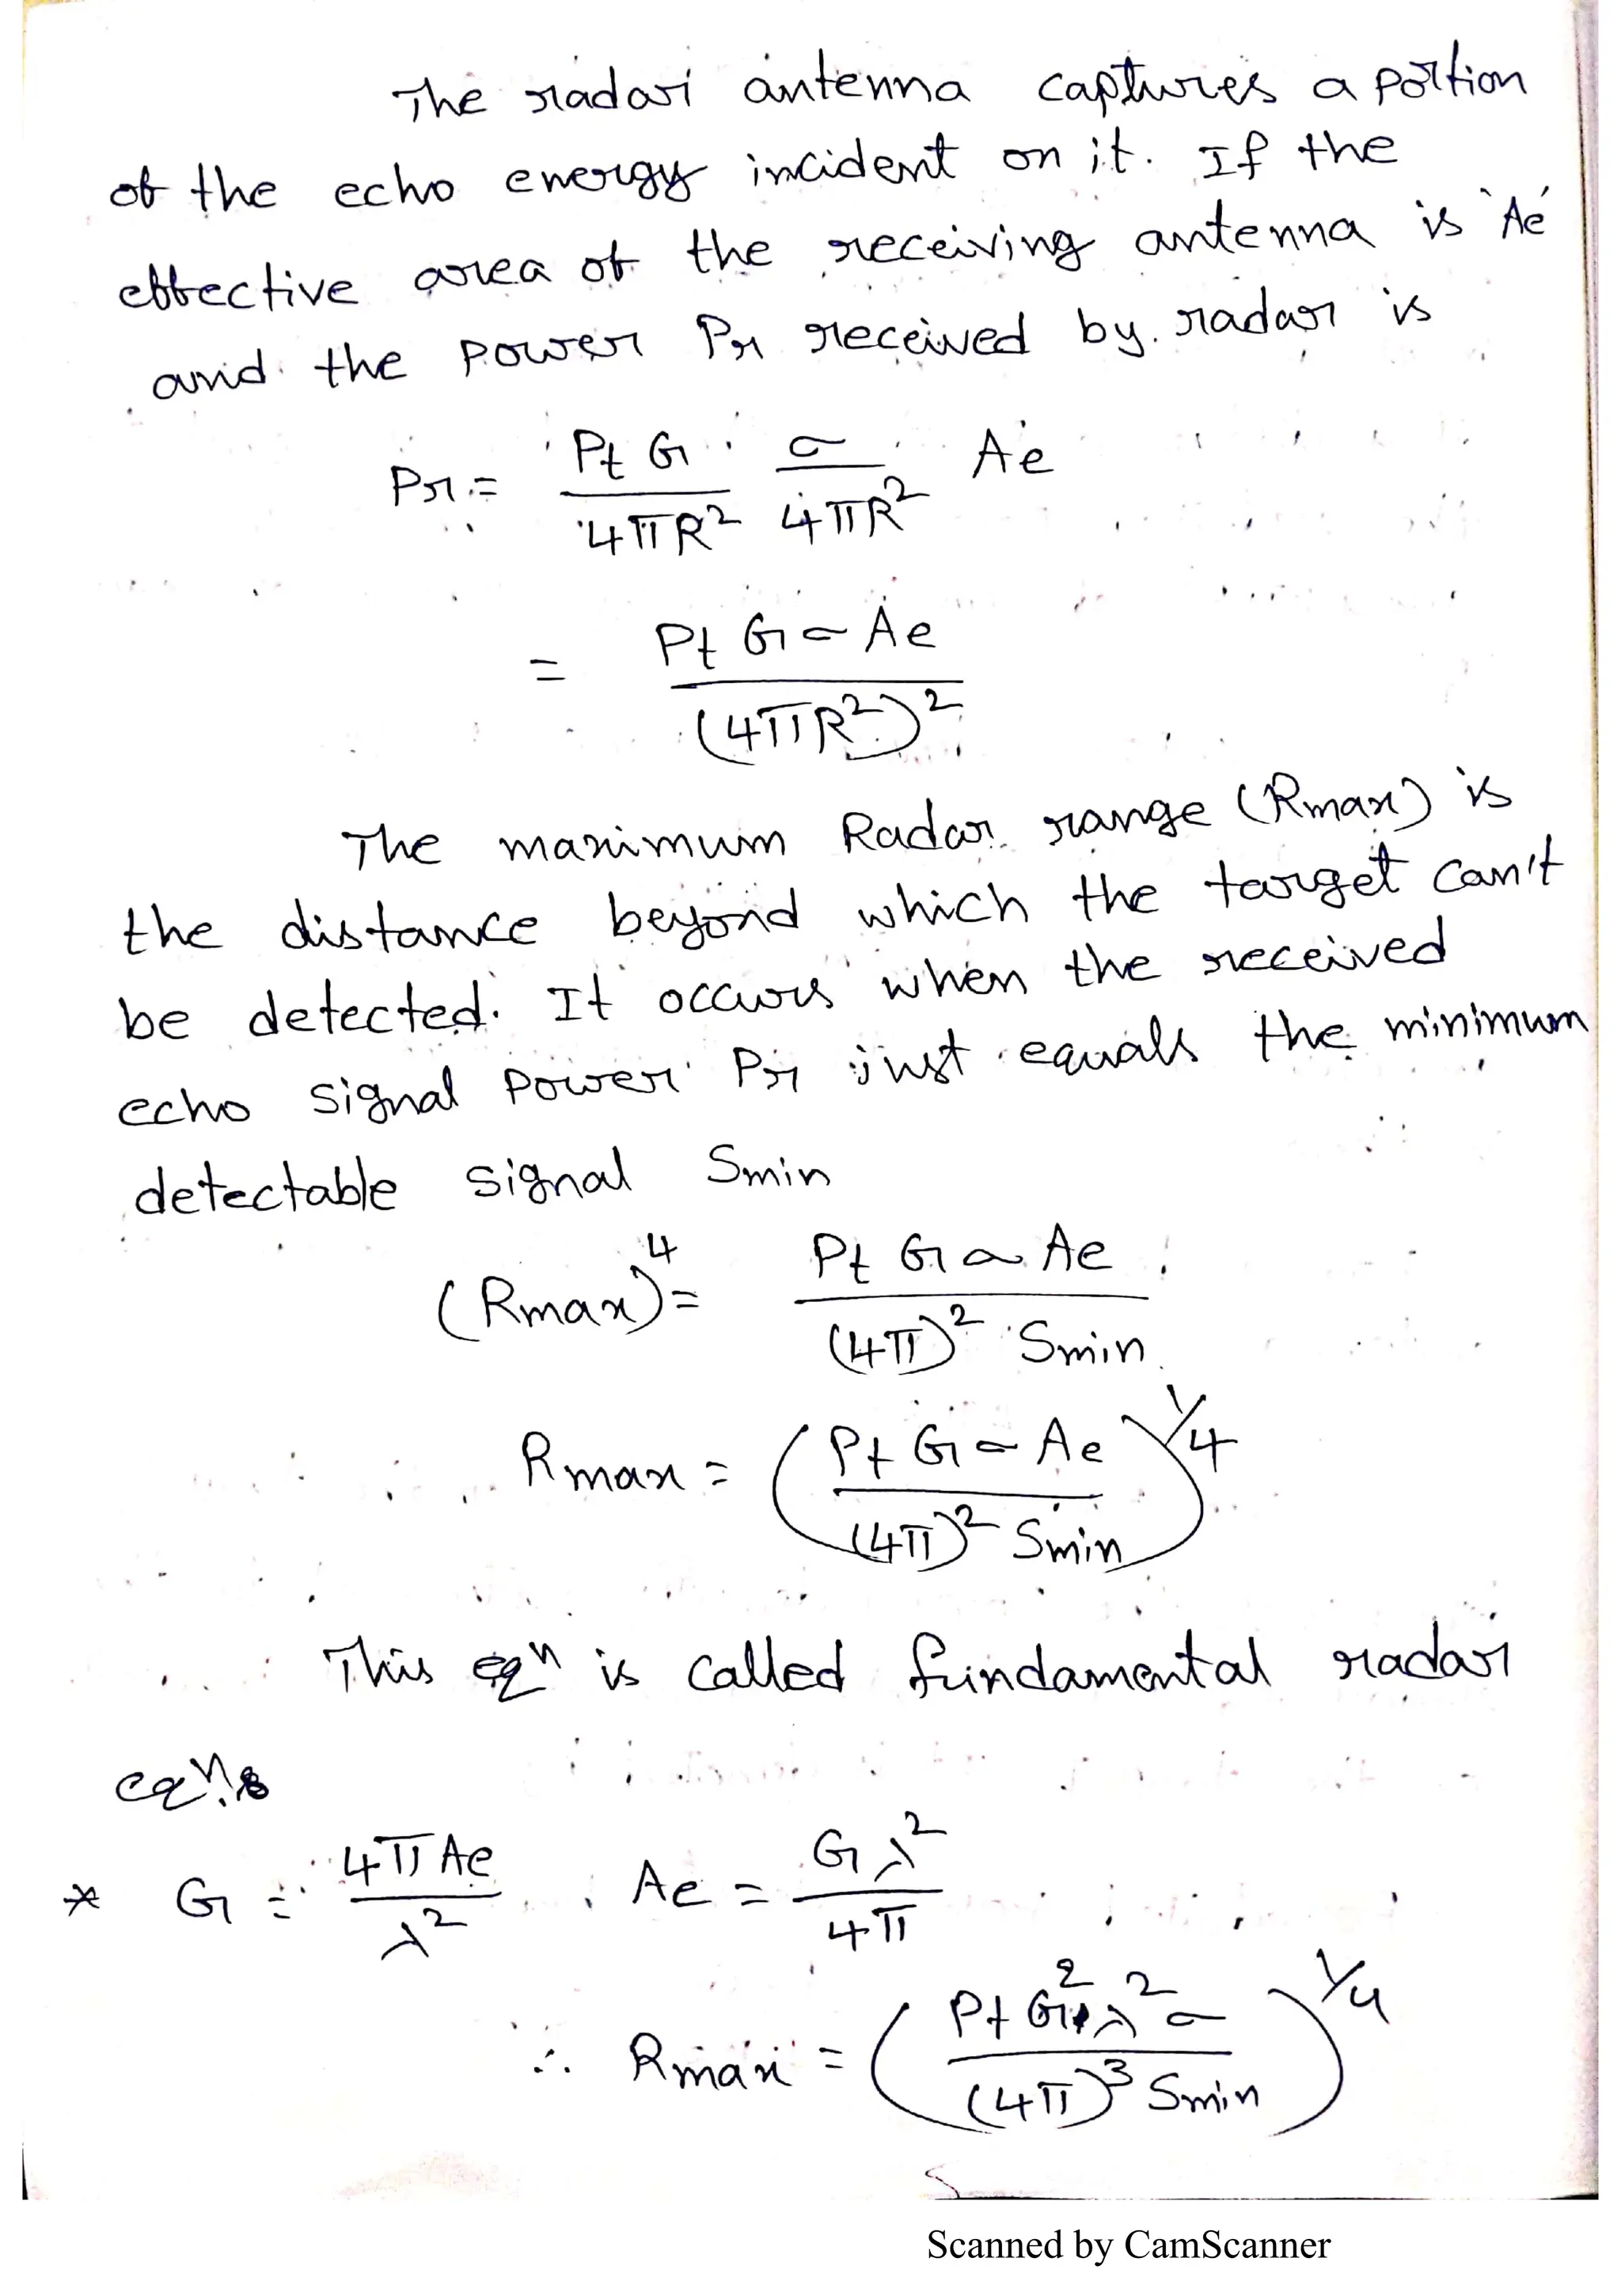 The radar antenna captures a portion
of the echo energy incident on it. If the
effective area of the receiving antenna is 'Ae'
and the power Pr received by radar is
Pr = Pt G / 4πR² σ / 4πR² Ae
= Pt G σ Ae / (4πR²)²
The maximum Radar range (Rmax) is
the distance beyond which the target can't
be detected. It occurs when the received
echo signal power Pr just equals the minimum
detectable signal Smin
(Rmax)⁴ = Pt G σ Ae / (4π)² Smin
Rmax = (Pt G σ Ae / (4π)² Smin)^1/4
This eqn is called fundamental radar
eqn.s
* G = 4π Ae / λ² Ae = G λ² / 4π
∴ Rmax = (Pt G² λ² σ / (4π)³ Smin)^1/4
Scanned by CamScanner